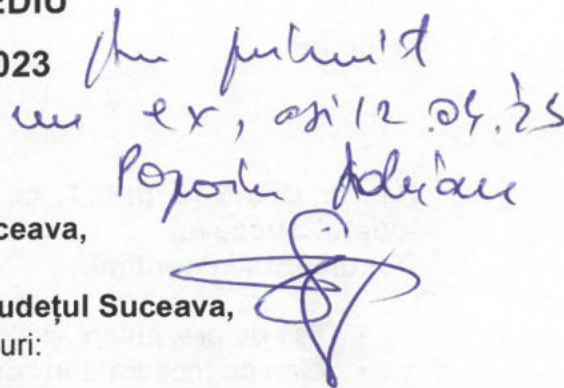 EDIU
023
Am primit
un ex, azi 12.04.23
Adrian
ceava,
udețul Suceava,
uri: